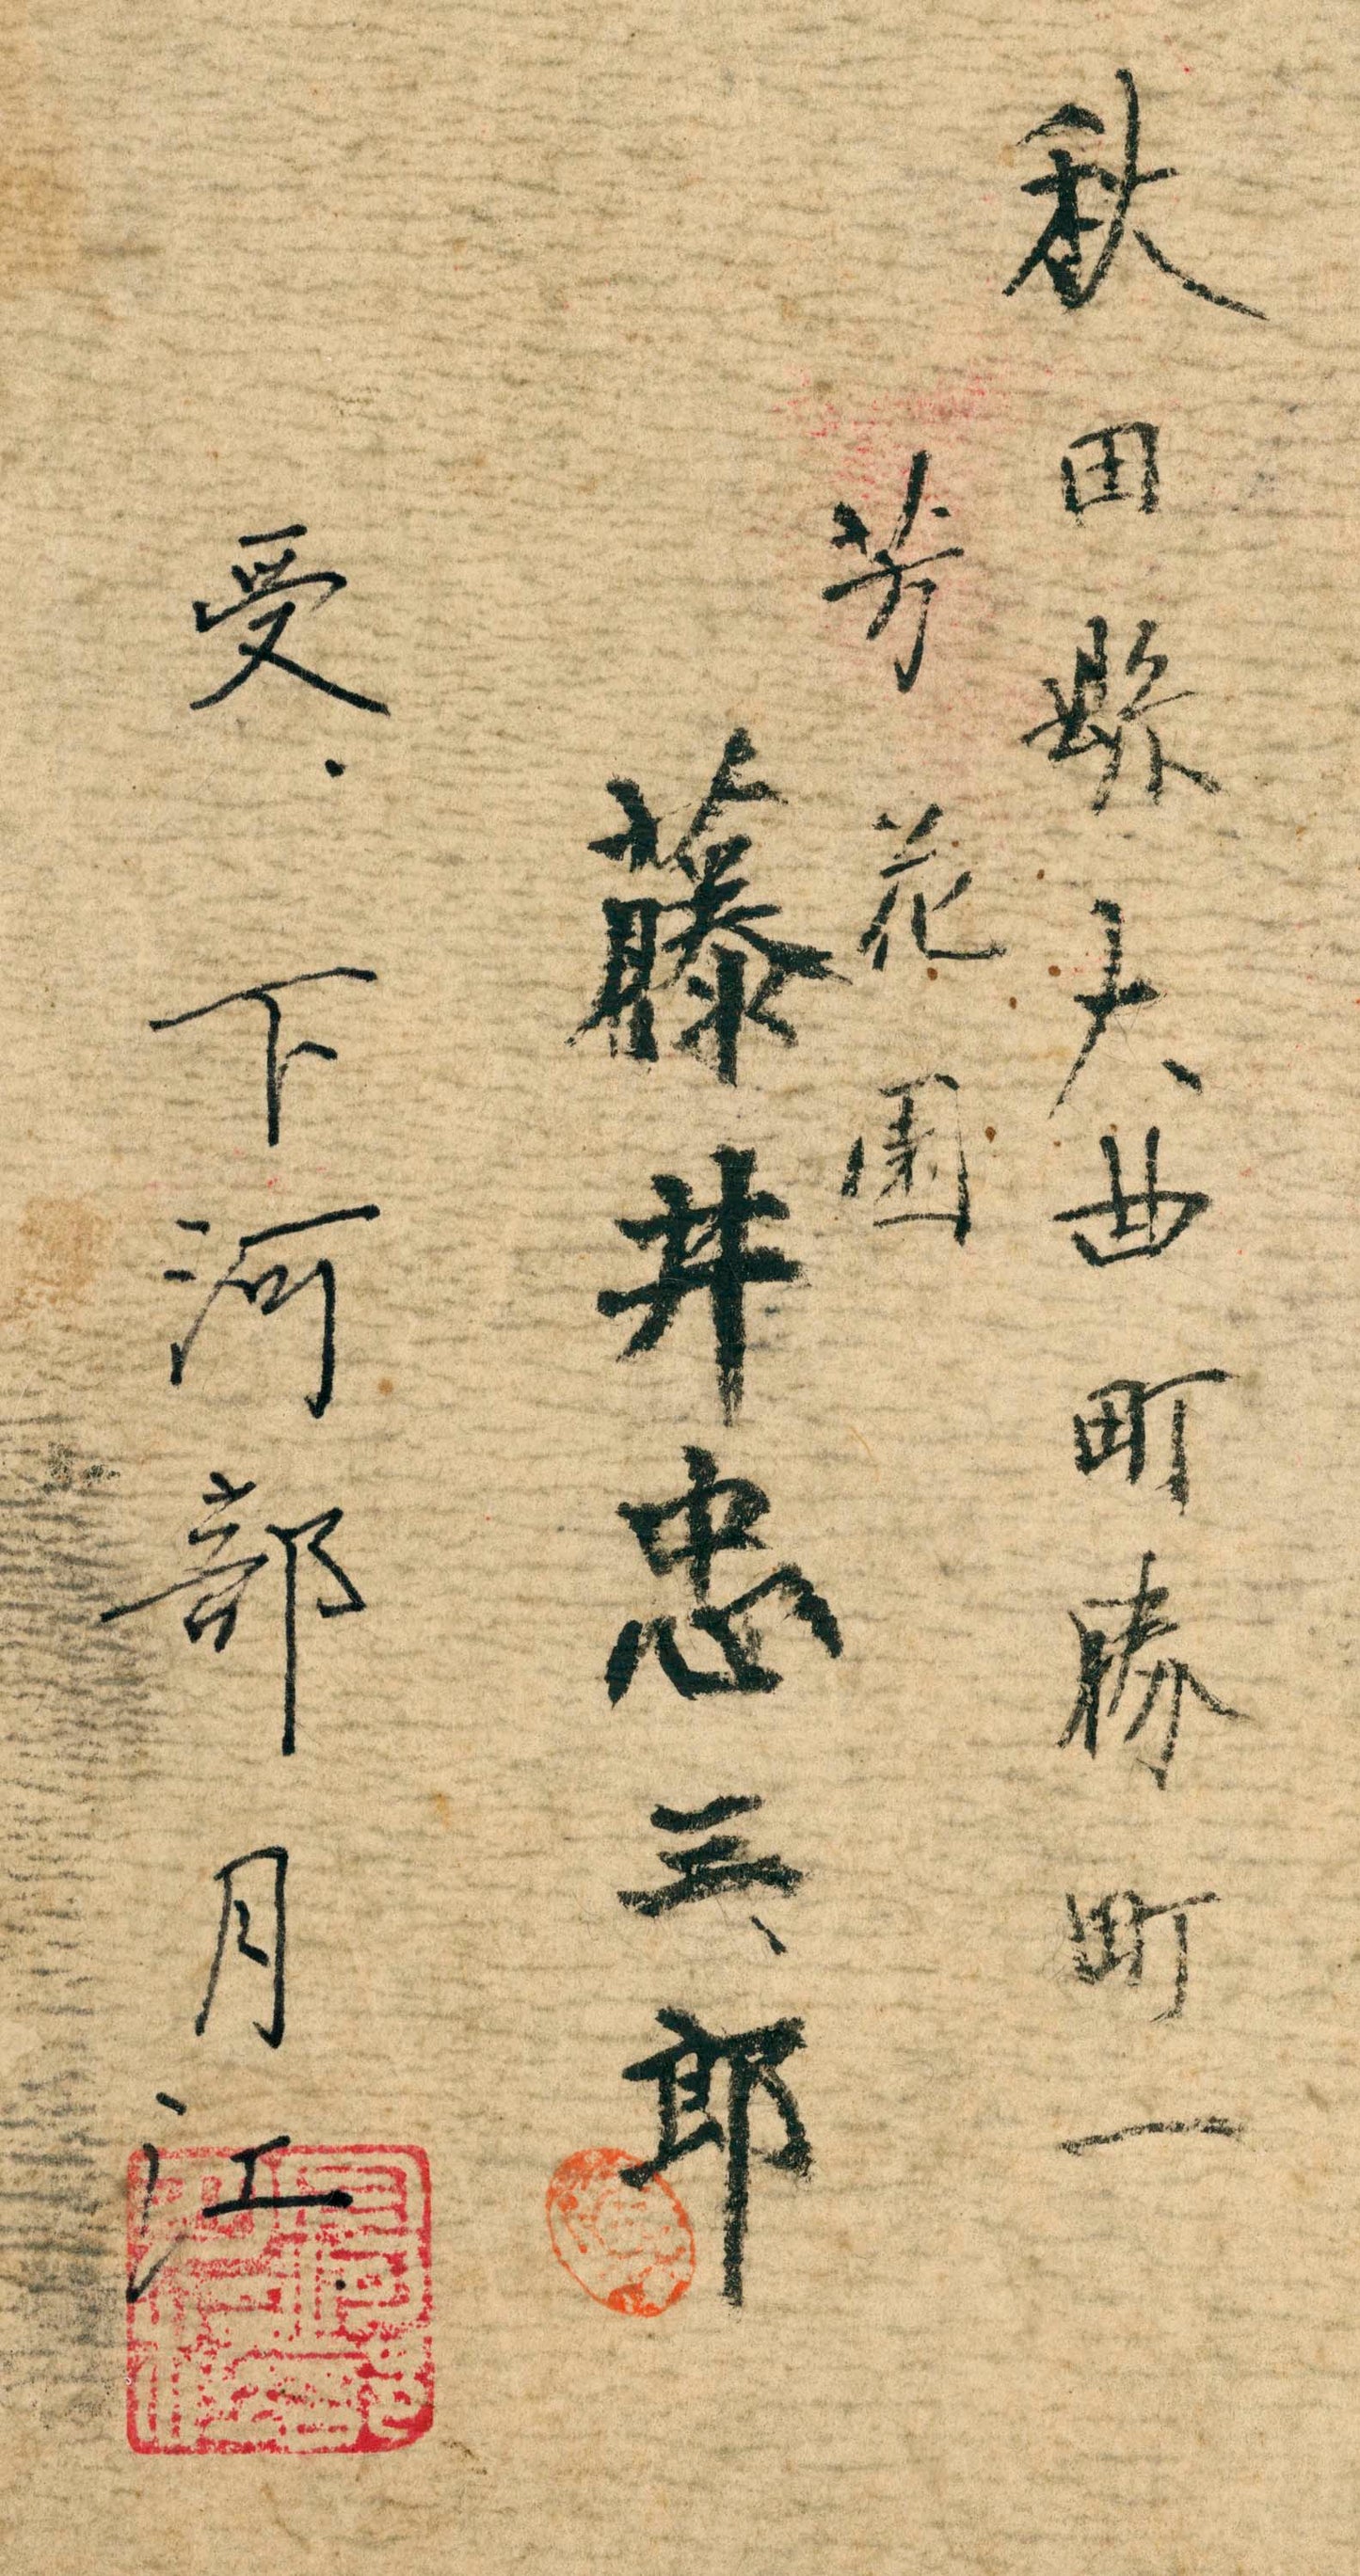 秋田縣大曲町勝町一
芳花園
藤井忠三郎
受.下河部月江